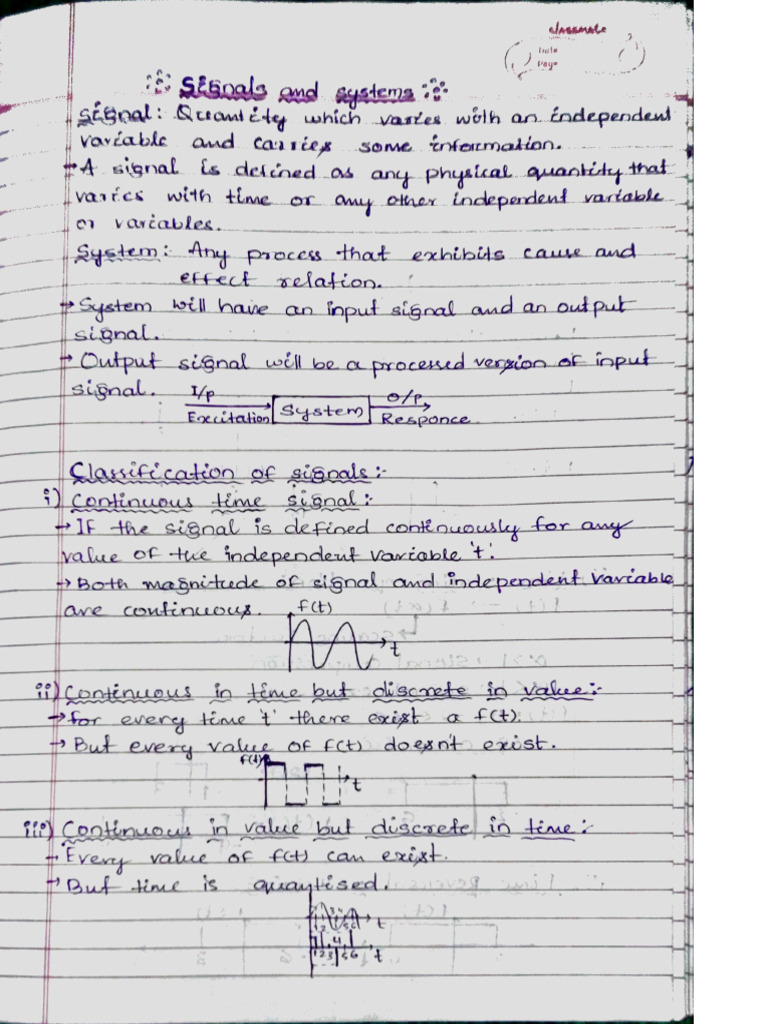 classmate
Date
Page
Signals and systems
Signal: Quantity which varies with an independent
variable and carries some information.
→ A signal is defined as any physical quantity that
varies with time or any other independent variable
or variables.
System: Any process that exhibits cause and
effect relation.
→ System will have an input signal and an output
signal.
→ Output signal will be a processed version of input
signal.
I/p System O/p
Excitation Responce
Classification of signals:-
i) Continuous time signal:
→ If the signal is defined continuously for any
value of the independent variable 't'.
→ Both magnitude of signal and independent variable
are continuous.
f(t)
t
ii) Continuous in time but discrete in value:-
→ for every time 't' there exist a f(t).
→ But every value of f(t) doesn't exist.
f(t)
t
iii) Continuous in value but discrete in time:-
→ Every value of f(t) can exist.
→ But time is quantised.
t
t